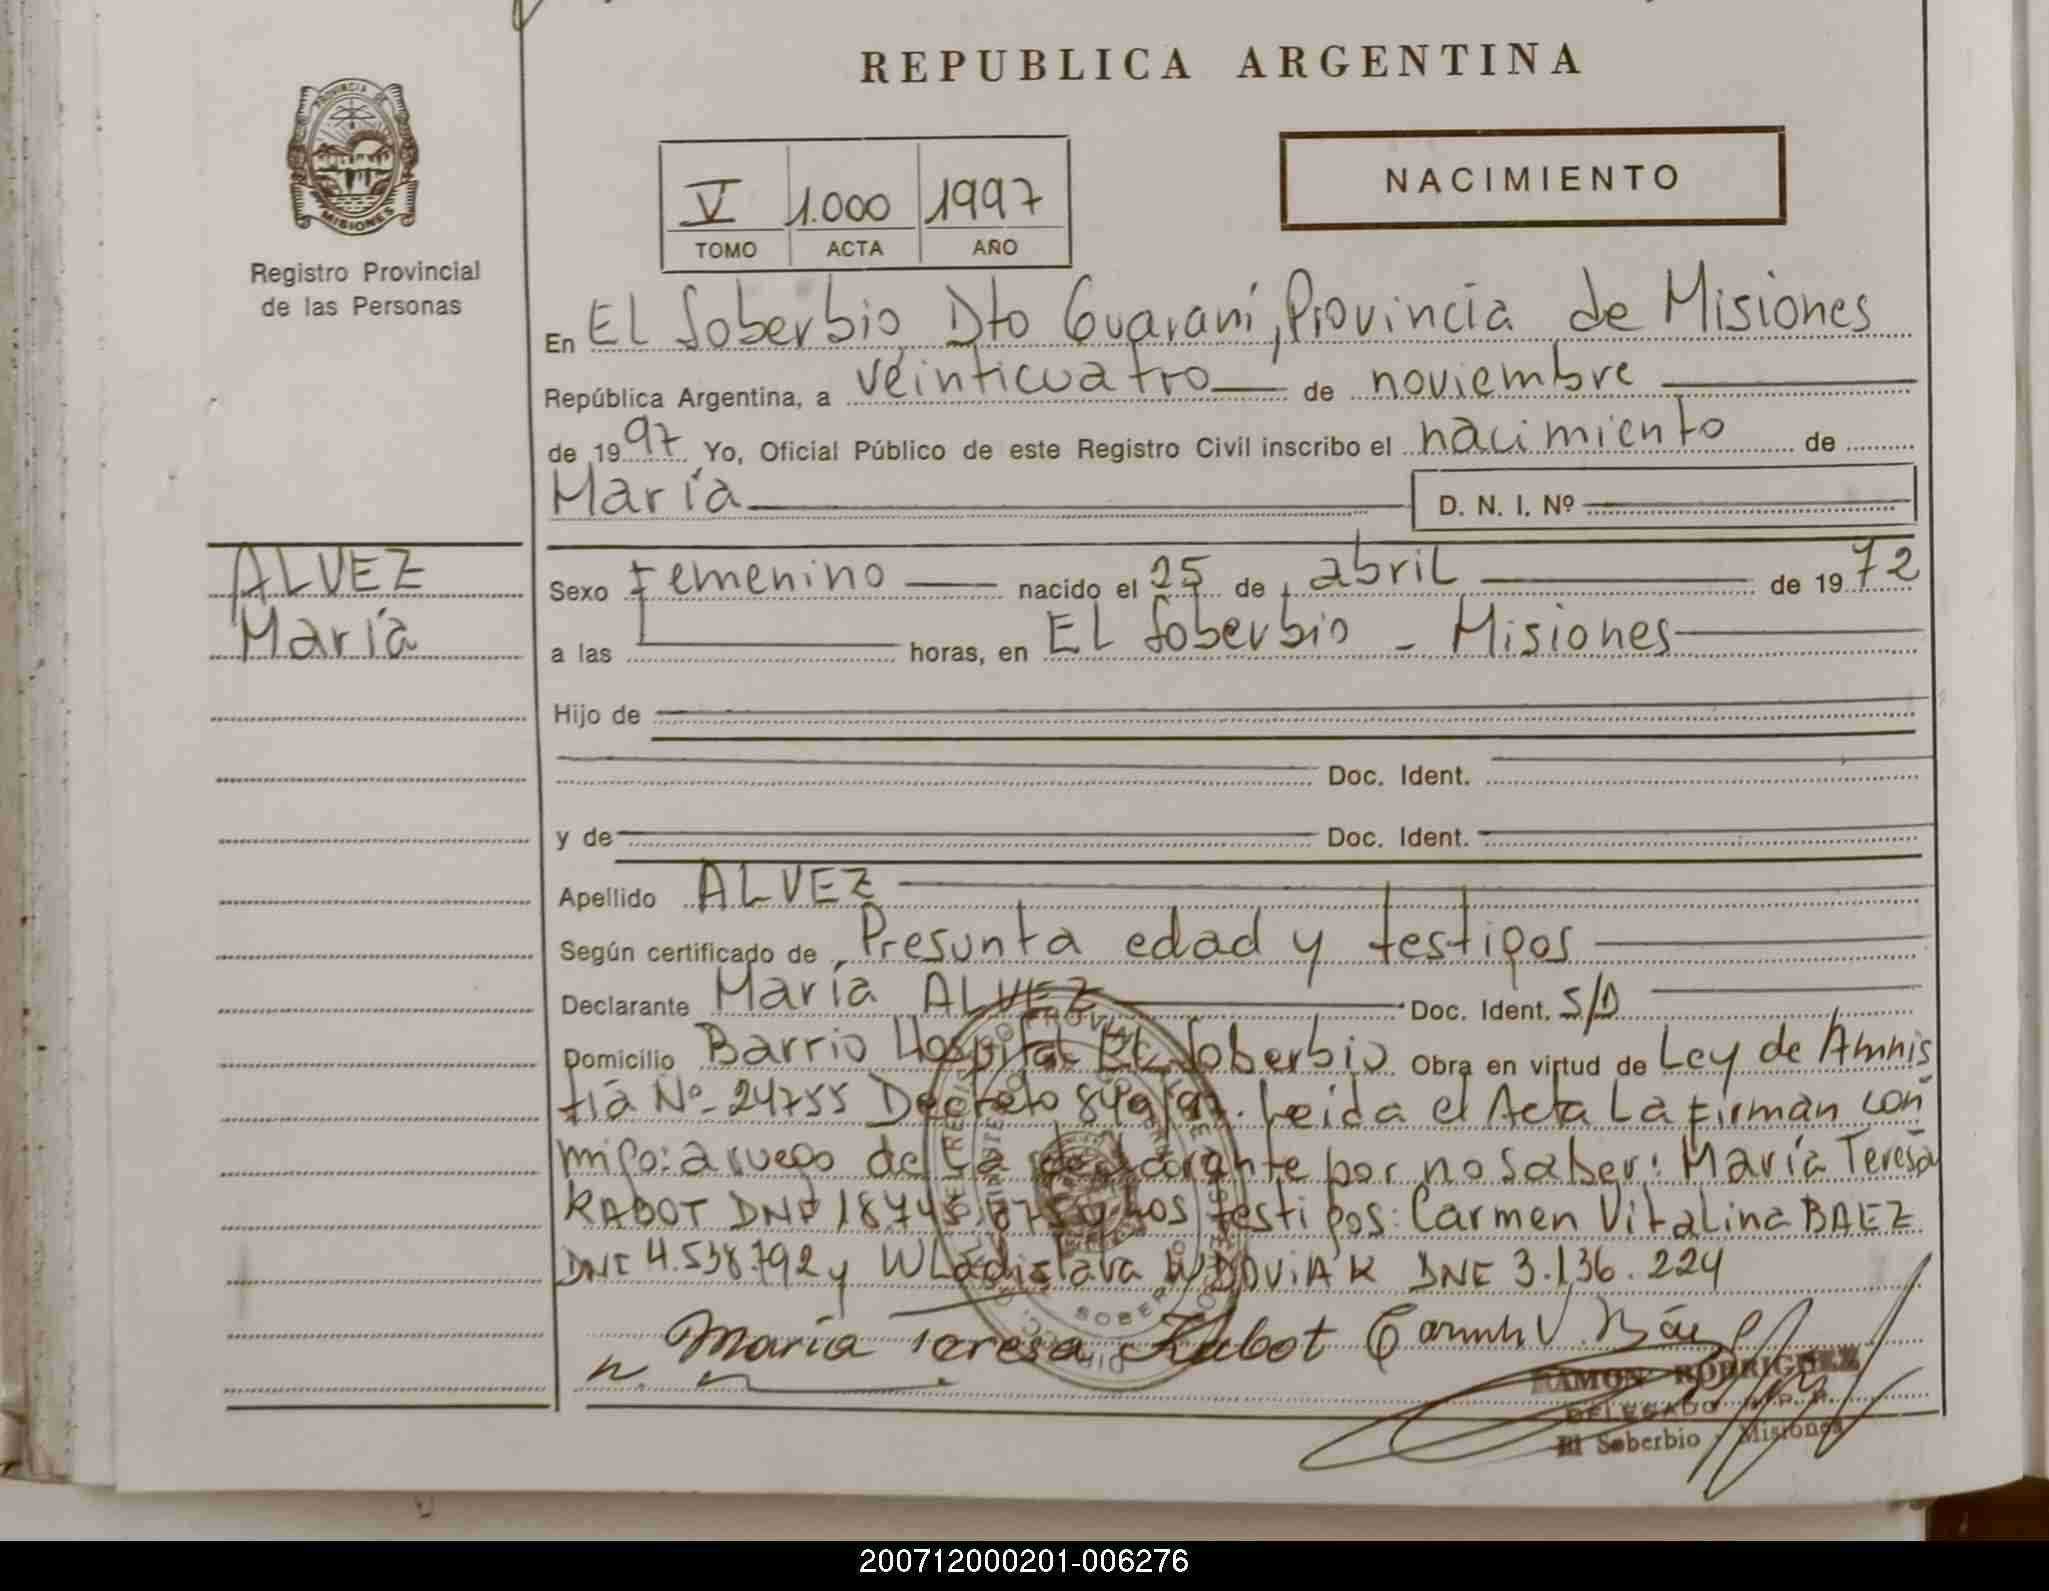 REPUBLICA ARGENTINA
PROVINCIA DE
MISIONES
Registro Provincial
de las Personas
V 1.000 1997
TOMO ACTA AÑO
NACIMIENTO
En EL Soberbio, Dto Guaraní, Provincia de Misiones
República Argentina, a veinticuatro de noviembre
de 1997 Yo, Oficial Público de este Registro Civil inscribo el nacimiento de
María D. N. I. Nº
ALVEZ
María
Sexo Femenino nacido el 25 de abril de 1972
a las horas, en EL Soberbio - Misiones
Hijo de
Doc. Ident.
y de Doc. Ident.
Apellido ALVEZ
Según certificado de Presunta edad y testigos
Declarante María ALVEZ Doc. Ident. S/D
Domicilio Barrio Hospital EL Soberbio Obra en virtud de Ley de Amnis
tía Nº 24755 Decreto 849/97. Leida el Acta La Firman con
migo: a ruego de La declarante por no saber: María Teresa
KABOT DNI 18.745.875 y Los testigos: Carmen Vitalina BAEZ
DNI 4.538.792 y WLadislava WDOVIAK DNI 3.136.224
María Teresa Kabot Carmen V. Báez
RAMON RODRIGUEZ
DELEGADO R.P.P.
El Soberbio - Misiones
200712000201-006276